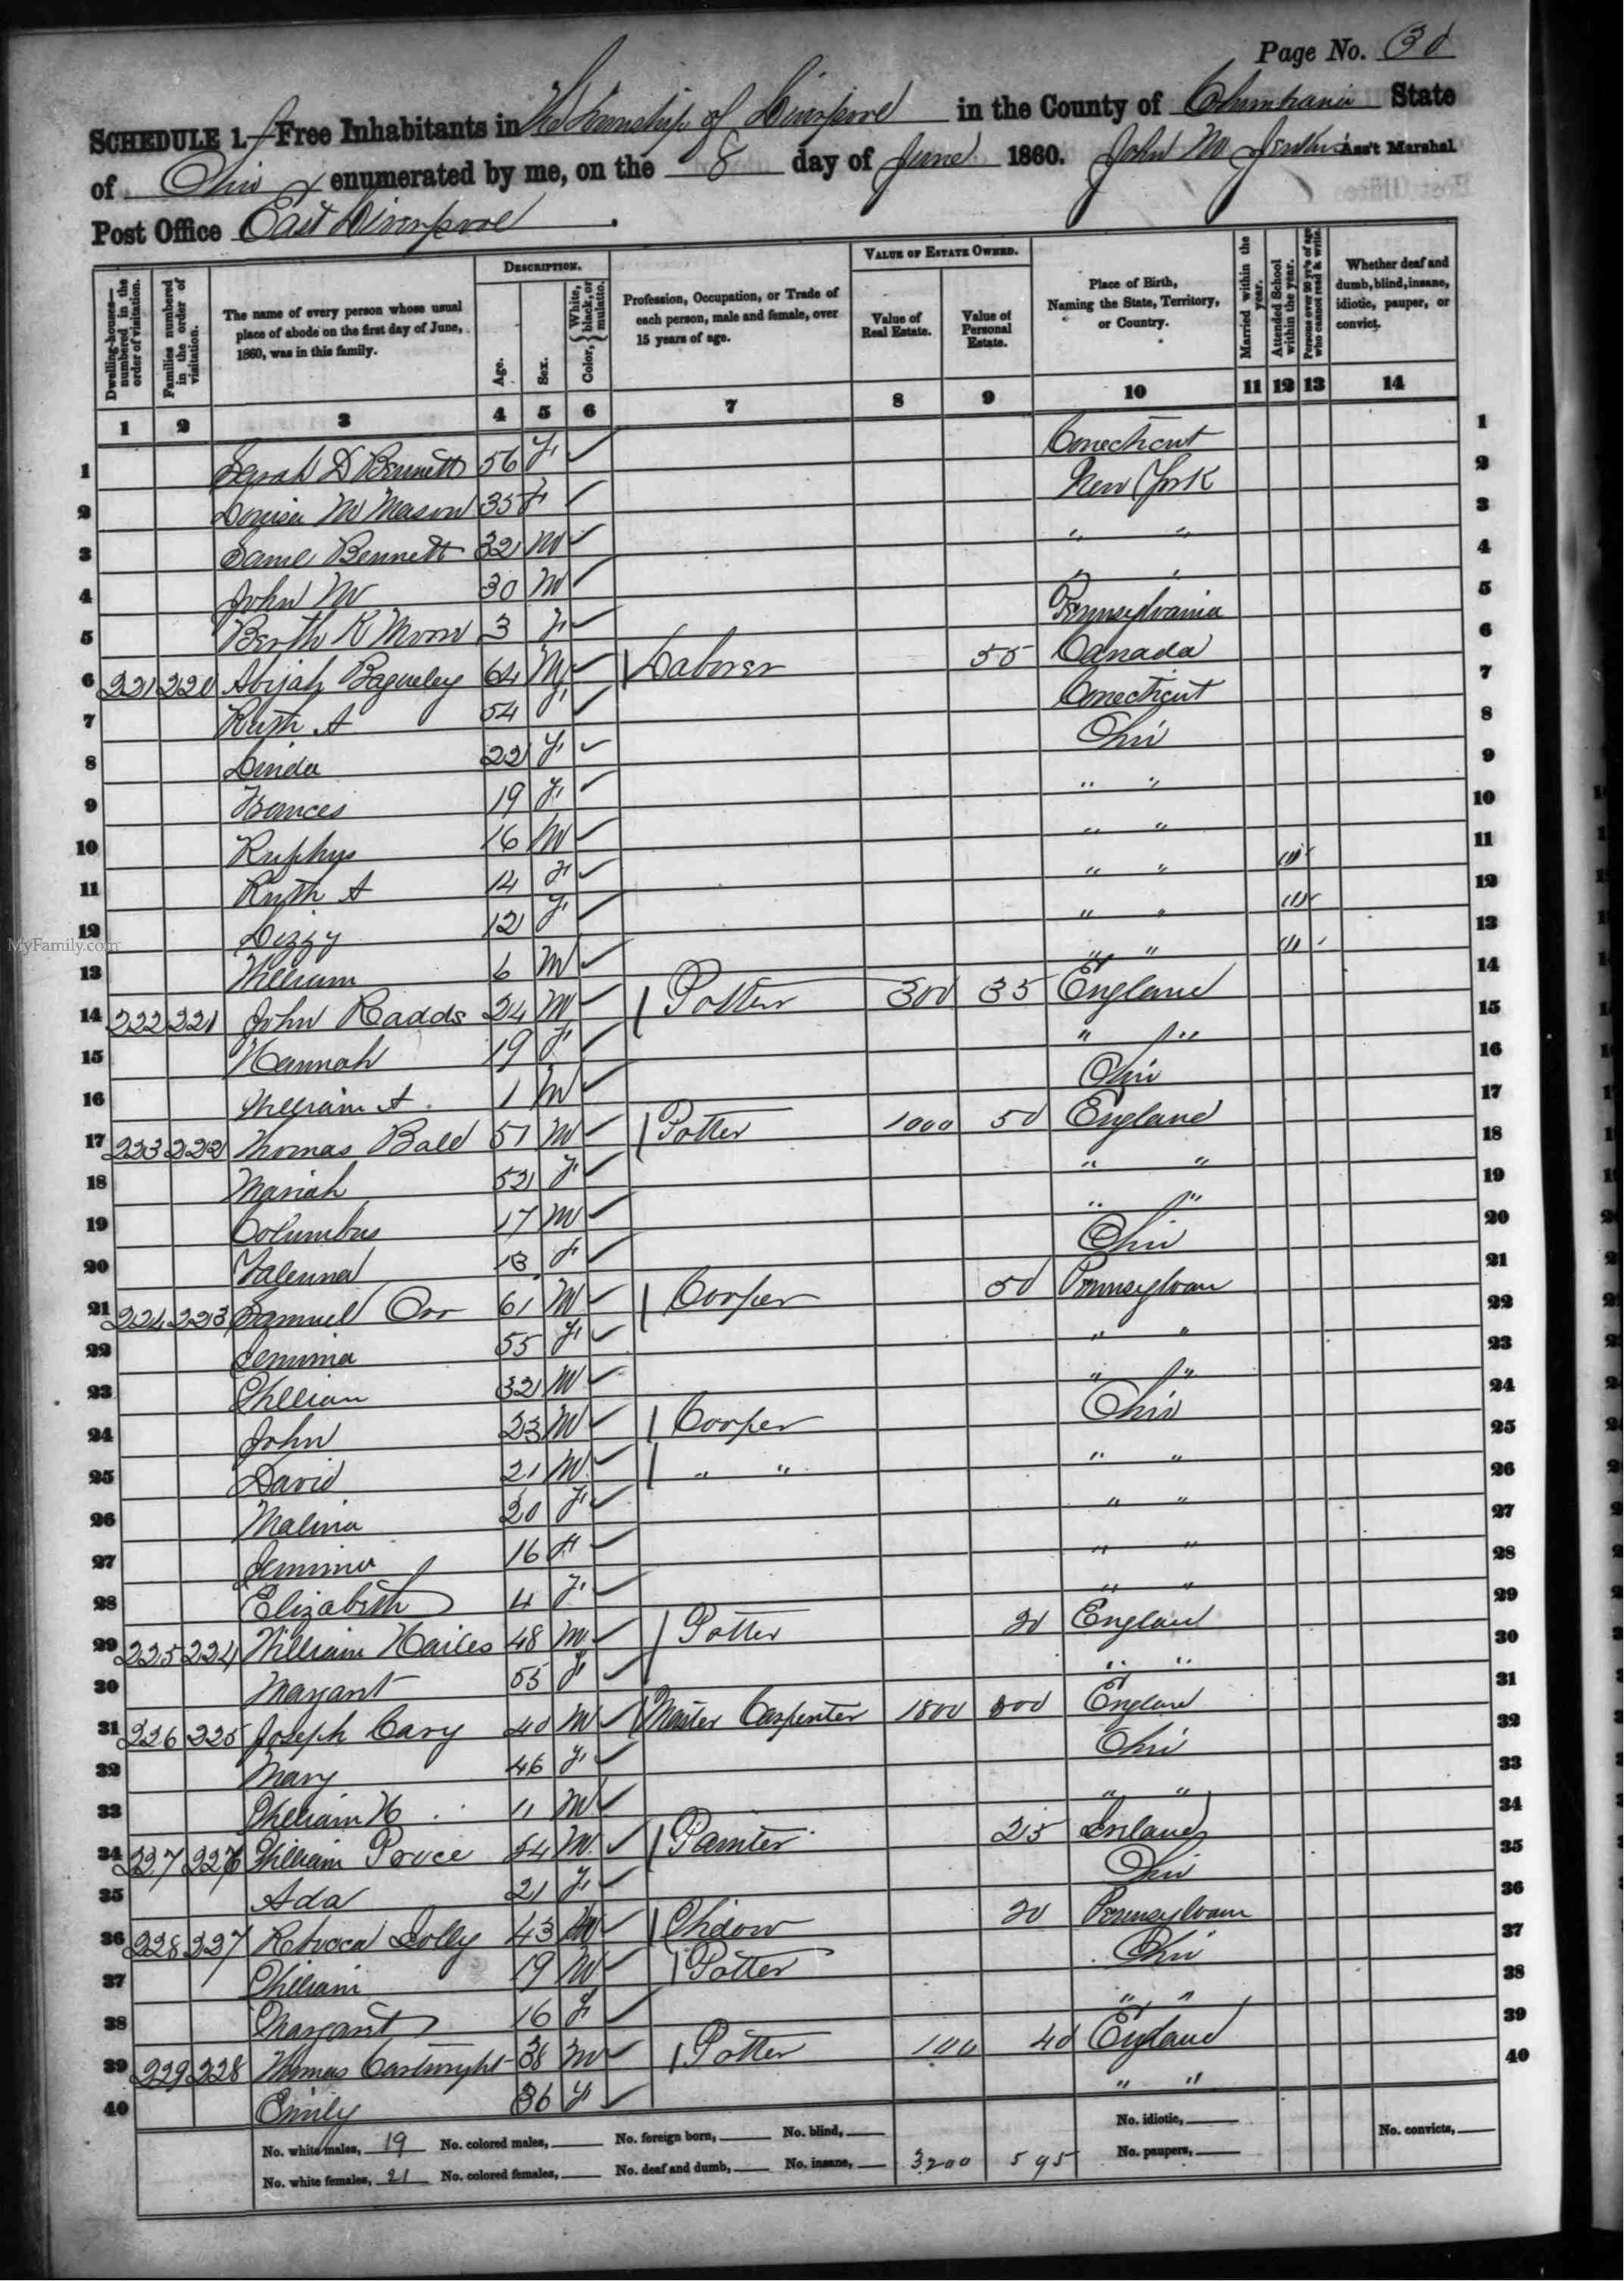 Page No. 30
SCHEDULE 1.—Free Inhabitants in The Township of Liverpool in the County of Columbiana State
of Ohio enumerated by me, on the 8 day of June 1860. John M Jenkins Ass't Marshal
Post Office East Liverpool.
Dwelling-houses—numbered in the order of visitation. Families numbered in the order of visitation. The name of every person whose usual place of abode on the first day of June, 1860, was in this family. DESCRIPTION. Age. Sex. Color, White, black, or mulatto. Profession, Occupation, or Trade of each person, male and female, over 15 years of age. VALUE OF ESTATE OWNED. Value of Real Estate. Value of Personal Estate. Place of Birth, Naming the State, Territory, or Country. Married within the year. Attended School within the year. Persons over 20 y'rs of age who cannot read & write. Whether deaf and dumb, blind, insane, idiotic, pauper, or convict.
1 2 3 4 5 6 7 8 9 10 11 12 13 14
1 Sarah D Bennett 56 F ✓ Conecticut 1
2 Louisa M Mason 35 F ✓ New York 2
3 Saml Bennett 32 M ✓ " " 3
4 John M 30 M ✓ " " 4
5 Berth K Moore 3 F ✓ Pennsylvania 5
6 221 220 Abijah Baguley 64 M ✓ / Laborer 55 Canada 6
7 Ruth A 54 F Conecticut 7
8 Linda 22 F ✓ Ohio 8
9 Frances 19 F ✓ " " 9
10 Ruphus 16 M ✓ " " 10
11 Ruth A 14 F ✓ " " (1) 11
12 Lizzy 12 F ✓ " " (1) 12
13 William 6 M ✓ " " (1) 13
14 222 221 John Radds 24 M ✓ / Potter 300 35 England 14
15 Hannah 19 F ✓ " " 15
16 William A. 1 M ✓ Ohio 16
17 223 222 Thomas Bald 51 M ✓ / Potter 1000 50 England 17
18 Mariah 52 F ✓ " " 18
19 Columbus 17 M ✓ " " 19
20 13 F ✓ Ohio 20
21 224 223 Samuel Orr 61 M ✓ / Cooper 50 Pennsylvan 21
22 Jemima 55 F ✓ " " 22
23 William 32 M ✓ " " 23
24 John 23 M ✓ / Cooper Ohio 24
25 David 21 M ✓ / " " " " 25
26 Malina 20 F ✓ " " 26
27 Jemima 16 F ✓ " " 27
28 Elizabeth 4 F ✓ " " 28
29 225 224 William Hailes 48 M ✓ / Potter 20 England 29
30 Margaret 55 F ✓ " " 30
31 226 225 Joseph Cary 40 M ✓ / Master Carpenter 1800 300 England 31
32 Mary 46 F ✓ Ohio 32
33 William H 11 M ✓ " " 33
34 227 226 William Pruce 54 M ✓ / Painter 25 Ireland 34
35 Ada 21 F ✓ Ohio 35
36 228 227 Rebecca Jolly 43 ✓ / Widow 20 Pennsylvan 36
37 William 19 M ✓ / Potter Ohio 37
38 Margaret 16 F ✓ " " 38
39 229 228 Thomas Cartwright 38 M ✓ / Potter 100 40 England 39
40 Emily 36 F ✓ " " 40
No. white males, 19 No. colored males, No. foreign born, No. blind, No. idiotic, No. convicts,
No. white females, 21 No. colored females, No. deaf and dumb, No. insane, 3200 595 No. paupers,
MyFamily.com